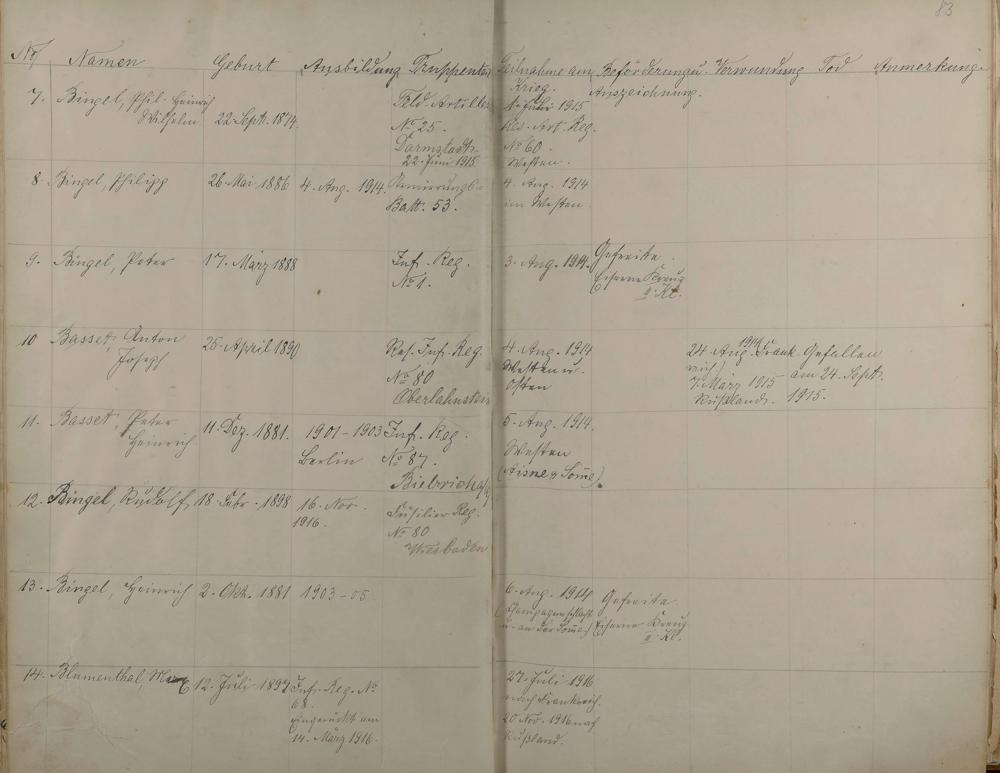 83
No Namen Geburt Ausbildung Truppenteil Teilnahme am Krieg. Beförderung u. Auszeichnung. Verwundung Tod Anmerkung.
7. Bingel, Phil. Heinrich
Wilhelm
22. Sept. 1874.
Feld-Artillerie
No 25.
Darmstadt.
22. Juni 1915
1. Juli 1915
Res. Art. Reg.
No 60.
Westen.
8. Bingel, Philipp
26. Mai 1886
4. Aug. 1914.
Armierungs-
Batt. 53.
4. Aug. 1914
im Westen.
9. Bingel, Peter
17. März 1888
Inf. Reg.
No 1.
3. Aug. 1914.
Gefreite.
Eiserne Kreuz
2. Kl.
10 Basset, Anton
Joseph
25. April 1890
Res. Inf. Reg.
No 80
Oberlahnstein
4. Aug. 1914
Westen u.
Osten
24. Aug. 1914 Frank-
reich
7. März 1915
Rußland.
Gefallen
am 24. Sept.
1915.
11. Basset, Peter
Heinrich
11. Dez. 1881.
1901-1903
Berlin
Inf. Reg.
No 87.
5. Aug. 1914.
Westen
(Aisne & Somme).
12. Bingel, Rudolf
18. Febr. 1898
16. Nov.
1916.
Füsilier Reg.
No 80
Wiesbaden
13. Bingel, Heinrich
2. Okt. 1881
1903-05
6. Aug. 1914
(Champagneschlacht
u. an der Somme)
Gefreite.
Eiserne Kreuz
2. Kl.
14. Blumenthal, Max
12. Juli 1897
Inf. Reg. No
68.
Eingerückt am
14. März 1916.
27. Juli 1916
nach Frankreich.
20. Nov. 1916 nach
Rußland.